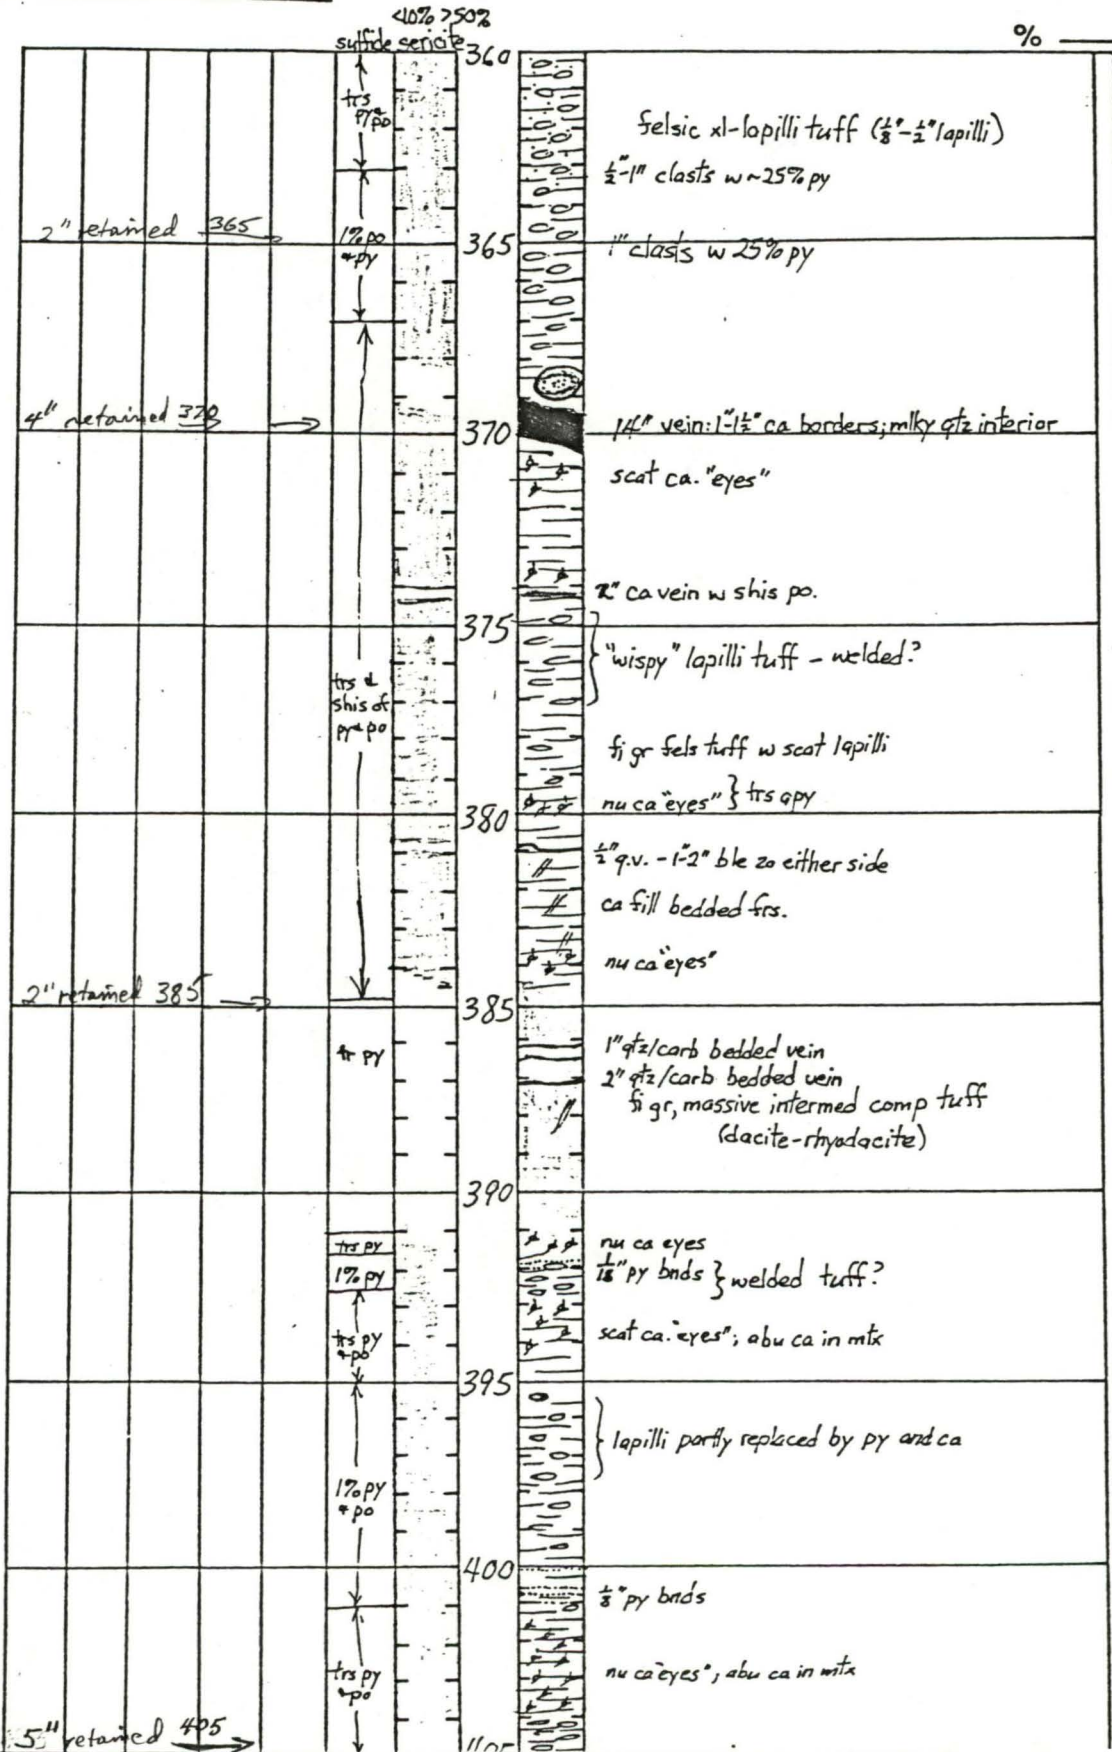 <10% >50%
sulfide sericite
%
360
trs
py+po
felsic xl-lapilli tuff (1/8"-1/2" lapilli)
1/2"-1" clasts w ~25% py
2" retained 365
1% po
+py
365
1" clasts w 25% py
4" retained 370
370
14" vein: 1"-1 1/2" ca borders; mlky qtz interior
scat ca. "eyes"
2" ca vein w shis po.
375
"wispy" lapilli tuff - welded?
trs &
shis of
py+po
fi gr fels tuff w scat lapilli
nu ca "eyes" } trs apy
380
1/2" q.v. - 1"-2" ble zo either side
ca fill bedded frs.
nu ca "eyes"
2" retained 385
385
tr py
1" qtz/carb bedded vein
2" qtz/carb bedded vein
fi gr, massive intermed comp tuff
(dacite-rhyodacite)
390
trs py
nu ca eyes
1% py
py bnds } welded tuff?
trs py
+po
scat ca. "eyes"; abu ca in mtx
395
lapilli partly replaced by py and ca
1% py
+po
400
1/8" py bnds
trs py
+po
nu ca "eyes"; abu ca in mtx
5" retained 405
405